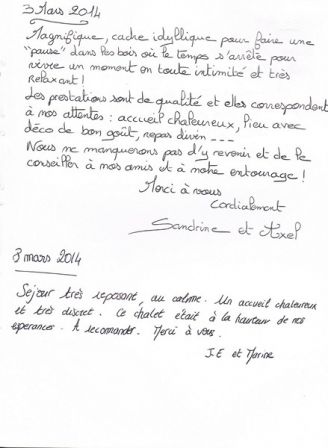 3 Mars 2014
Magnifique, cadre idyllique pour faire une
"pause" dans les bois où le temps s'arrête pour
vivre un moment en toute intimité et très
relaxant !
Les prestations sont de qualité et elles correspondent
à nos attentes : accueil chaleureux, lieu avec
déco de bon goût, repas divin ---
Nous ne manquerons pas d'y revenir et de le
conseiller à mes amis et à notre entourage !
Merci à vous
Cordialement
Sandrine et Axel
3 mars 2014
Séjour très reposant, au calme. Un accueil chaleureux
et très discret. Ce chalet était à la hauteur de nos
espérances. A recommander. Merci à vous.
J.E et Marine